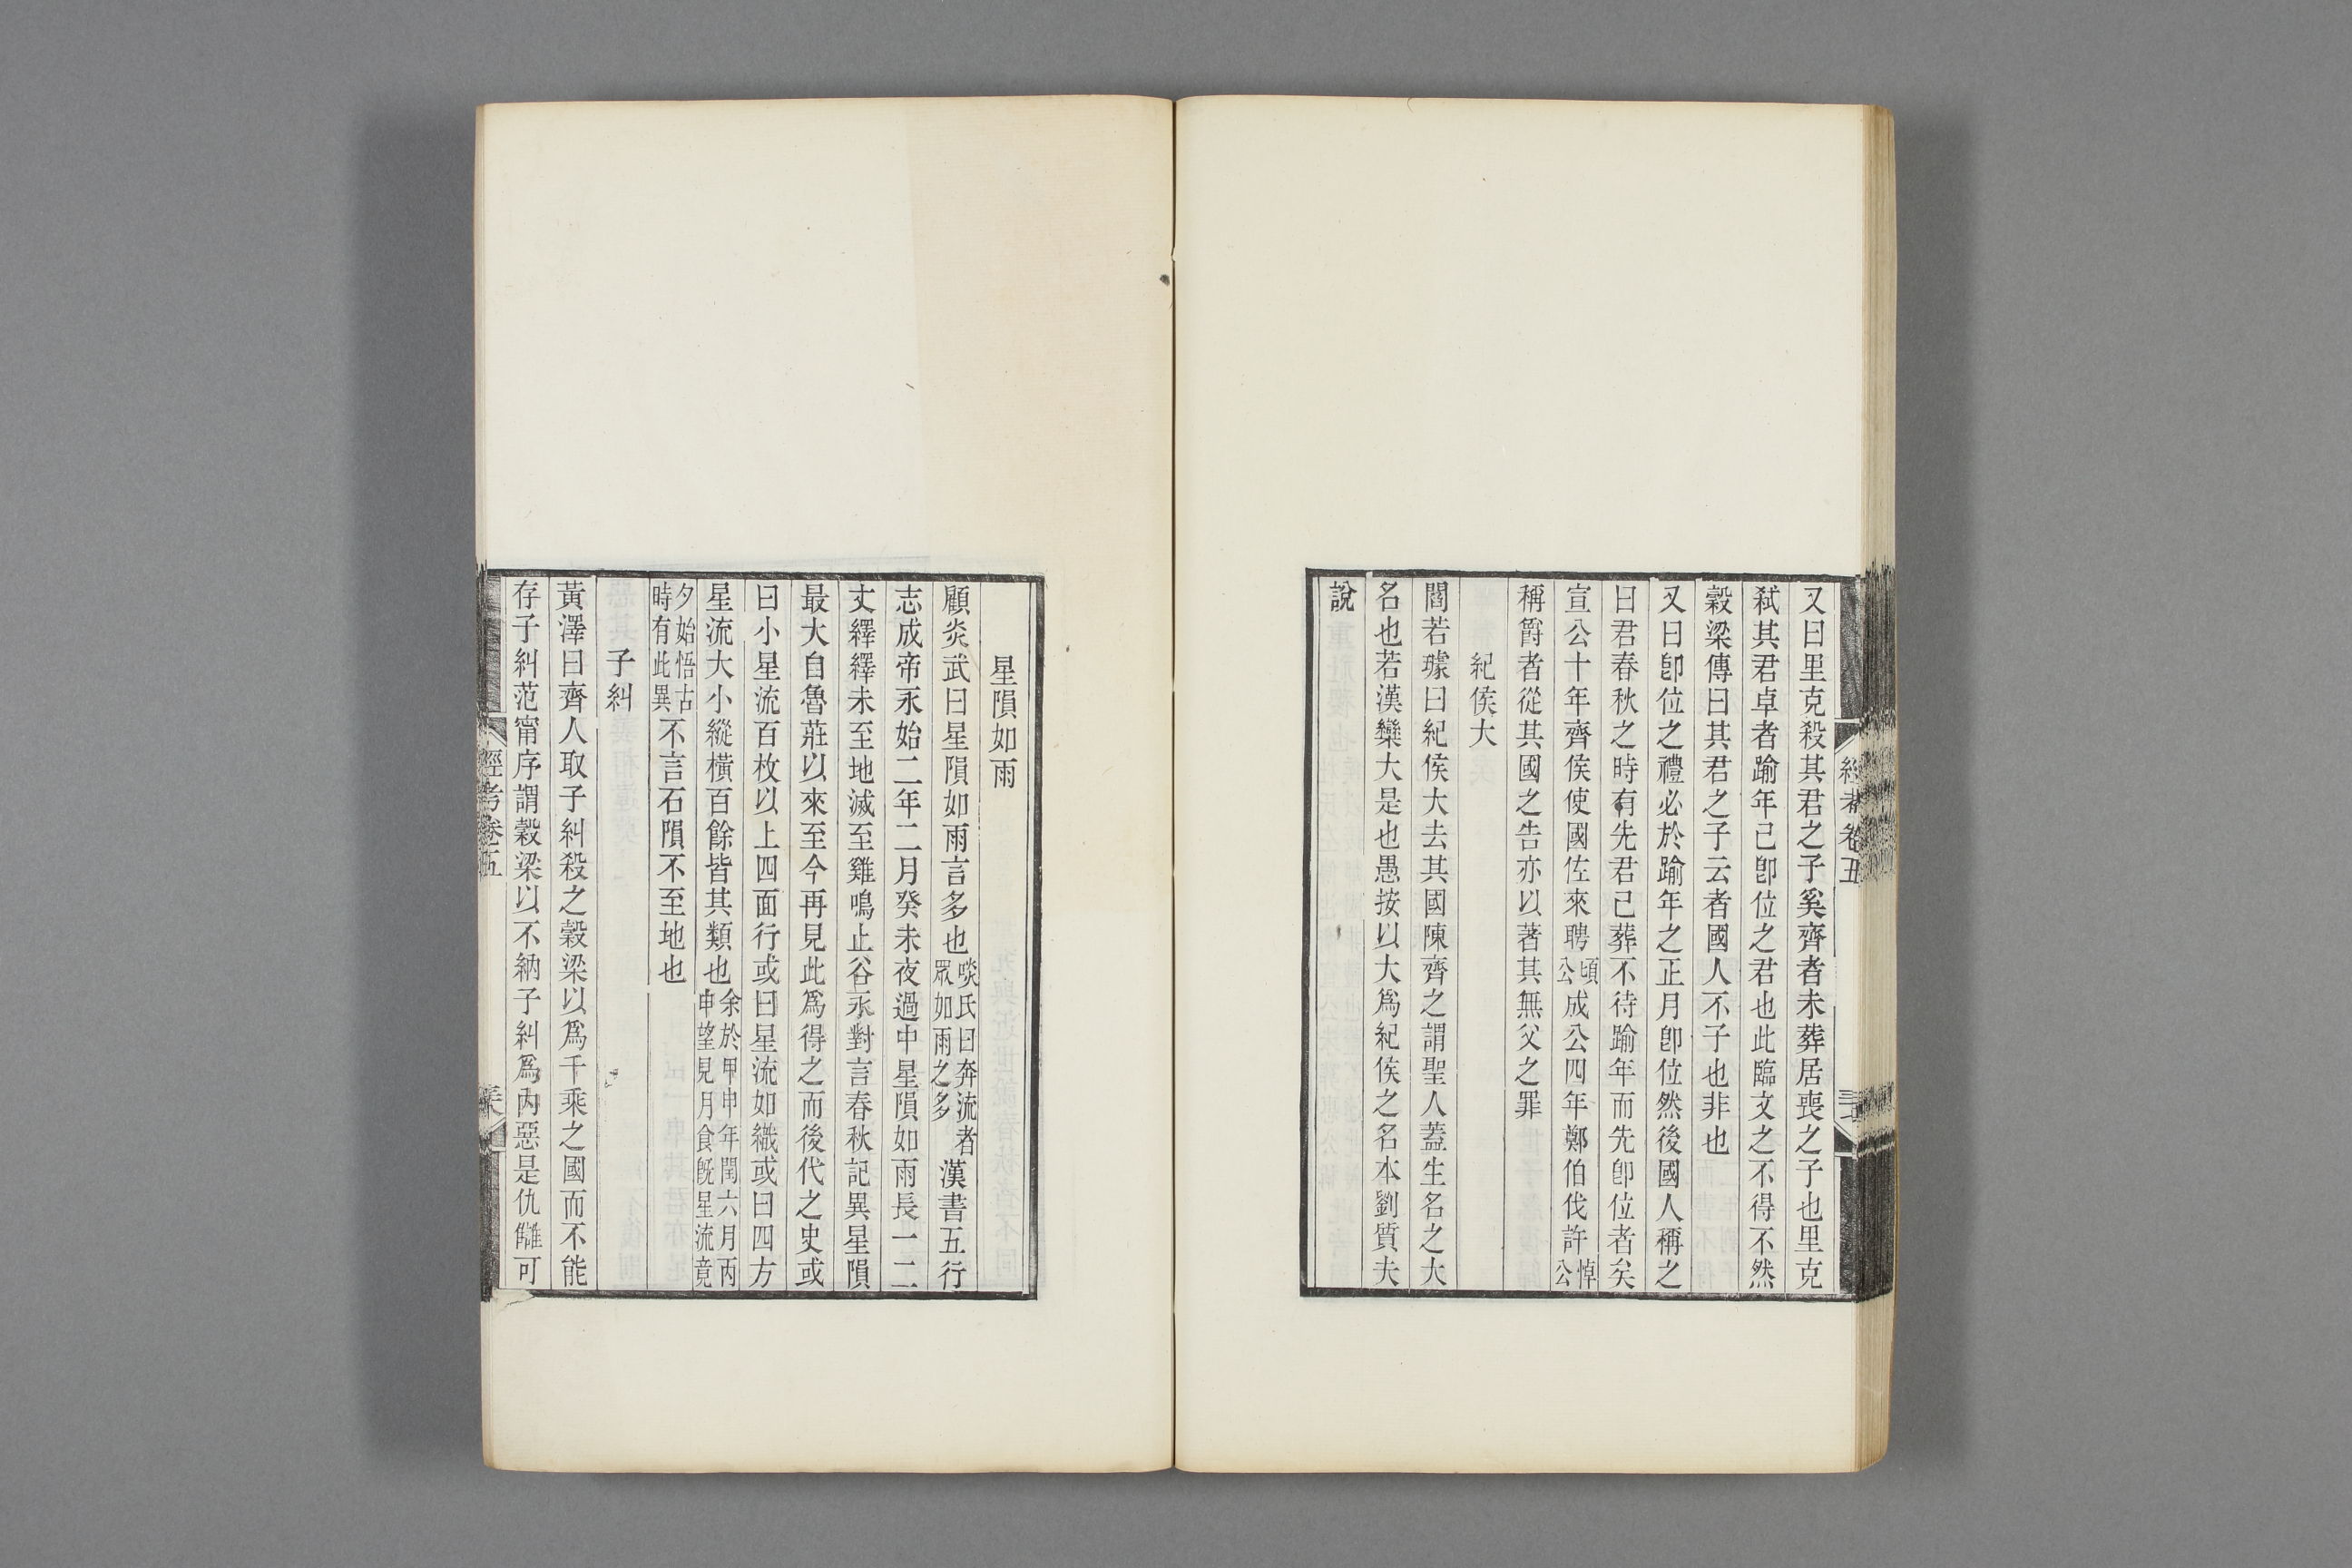 又曰里克殺其君之子奚齊者未葬居喪之子也里克
弑其君卓者踰年已卽位之君也此臨文之不得不然
穀梁傳曰其君之子云者國人不子也非也
又曰卽位之禮必於踰年之正月卽位然後國人稱之
曰君春秋之時有先君已葬不待踰年而先卽位者矣
宣公十年齊侯使國佐來聘頃公成公四年鄭伯伐許悼公
稱爵者從其國之告亦以著其無父之罪
紀侯大
閻若璩曰紀侯大去其國陳齊之謂聖人蓋生名之大
名也若漢欒大是也愚按以大爲紀侯之名本劉質夫
說
經考卷五
星隕如雨
顧炎武曰星隕如雨言多也啖氏曰奔流者眾如雨之多漢書五行
志成帝永始二年二月癸未夜過中星隕如雨長一二
丈繹繹未至地滅至雞鳴止谷永對言春秋記異星隕
最大自魯莊以來至今再見此爲得之而後代之史或
曰小星流百枚以上四面行或曰星流如織或曰四方
星流大小縱橫百餘皆其類也余於甲申年閏六月丙申望見月食旣星流竟
夕始悟古時有此異不言石隕不至地也
子糾
黃澤曰齊人取子糾殺之穀梁以爲千乘之國而不能
存子糾范甯序謂穀梁以不納子糾爲內惡是仇讎可
經考卷五